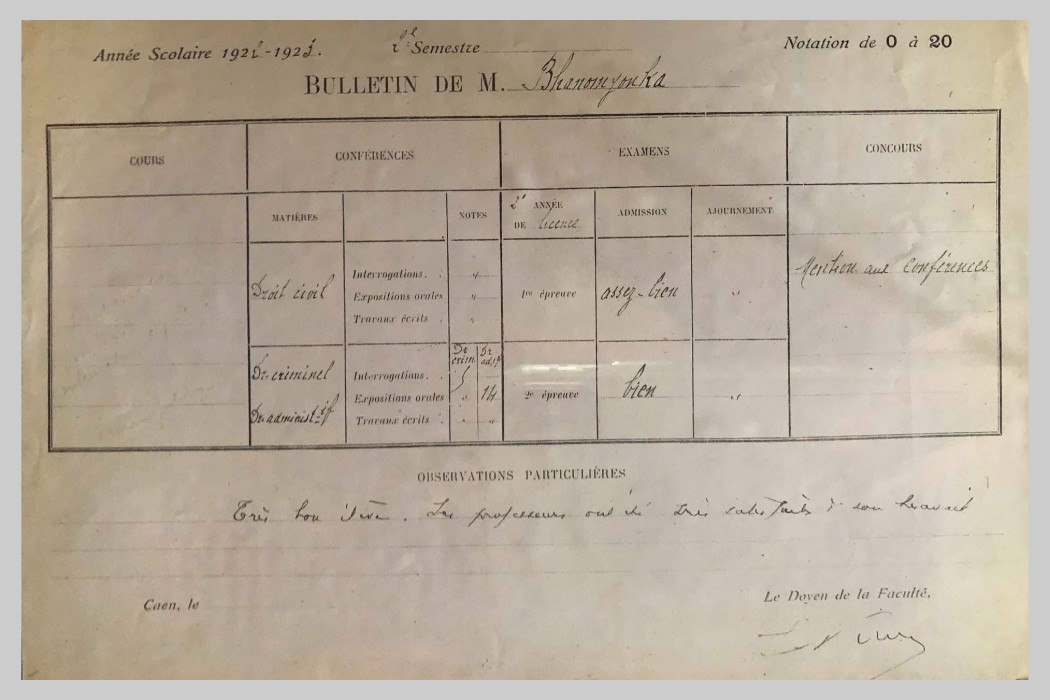 Année Scolaire 1922-1923. 2e Semestre Notation de 0 à 20
BULLETIN DE M. Bhanomyonka
COURS CONFÉRENCES EXAMENS CONCOURS
MATIÈRES NOTES 2e ANNÉE DE licence ADMISSION AJOURNEMENT
Droit civil
Interrogations. . "
Expositions orales "
Travaux écrits . "
1re épreuve assez-bien "
Mention aux Conférences
Dr crim. Dr adtf
Dr. criminel
Dr. administtif
Interrogations. .
Expositions orales " 14
Travaux écrits . " "
2e épreuve bien "
OBSERVATIONS PARTICULIÈRES
Très bon élève. Les professeurs ont été très satisfaits de son travail
Caen, le
Le Doyen de la Faculté,